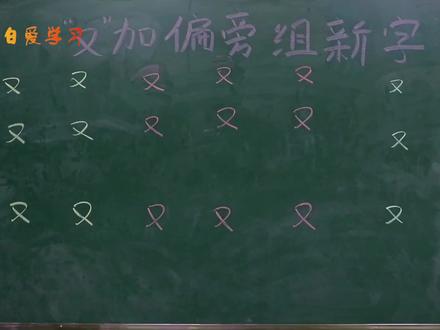 白爱学习
"又"加偏旁组新字
又 又 又 又 又 又
又 又 又 又 又 又
又 又 又 又 又 又